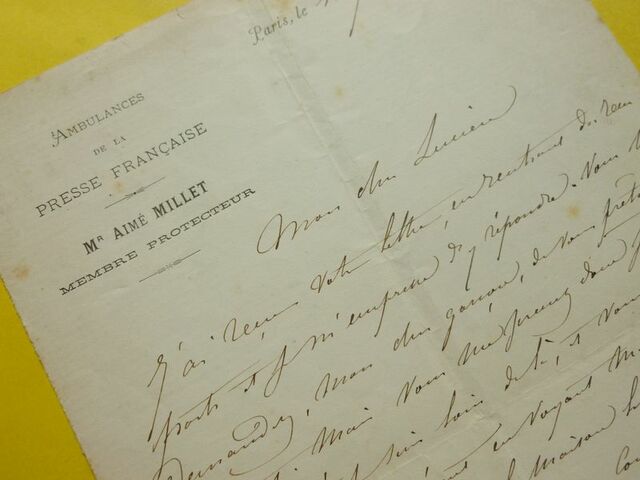 Paris, le
AMBULANCES
DE LA
PRESSE FRANÇAISE
Mr AIMÉ MILLET
MEMBRE PROTECTEUR
Mon cher Lucien
J'ai reçu votre lettre, en rentrant
et je m'empresse d'y répondre. Vous
demandez, mon cher garçon, de vous prêter
Mais vous me prenez donc
loin de là, et vous
en voyant
maison